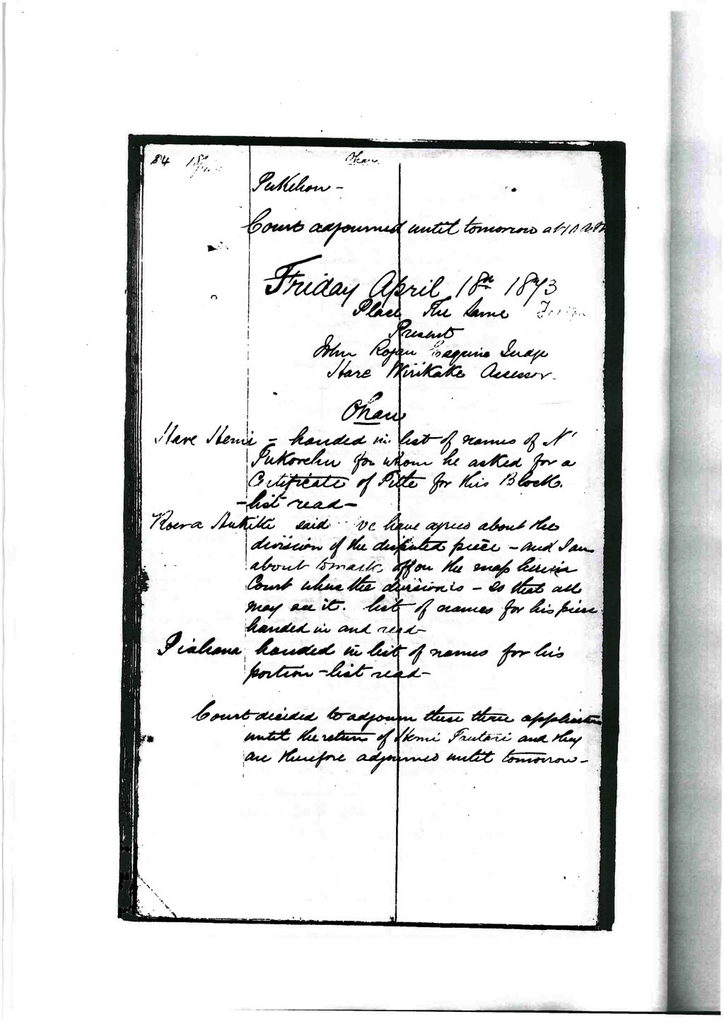 84
Ohau
Pukehou -
Court adjourned until tomorrow at 10 am
Friday April 18th 1873
Place The Same
Present
John Rogan Esquire Judge
Hare Wirikake Assessor.
Ohau
Hare Hemi - handed in list of names of N'
Pukorehu for whom he asked for a
Certificate of Title for his Block.
- list read -
said we have agreed about the
division of the disputed piece - and I am
about to mark off on the map here in
Court where the division is - so that all
may see it. list of names for his piece
handed in and read -
handed in list of names for his
portion - list read -
Court decided to adjourn these three application
until the return of Hemi and they
are therefore adjourned until tomorrow -